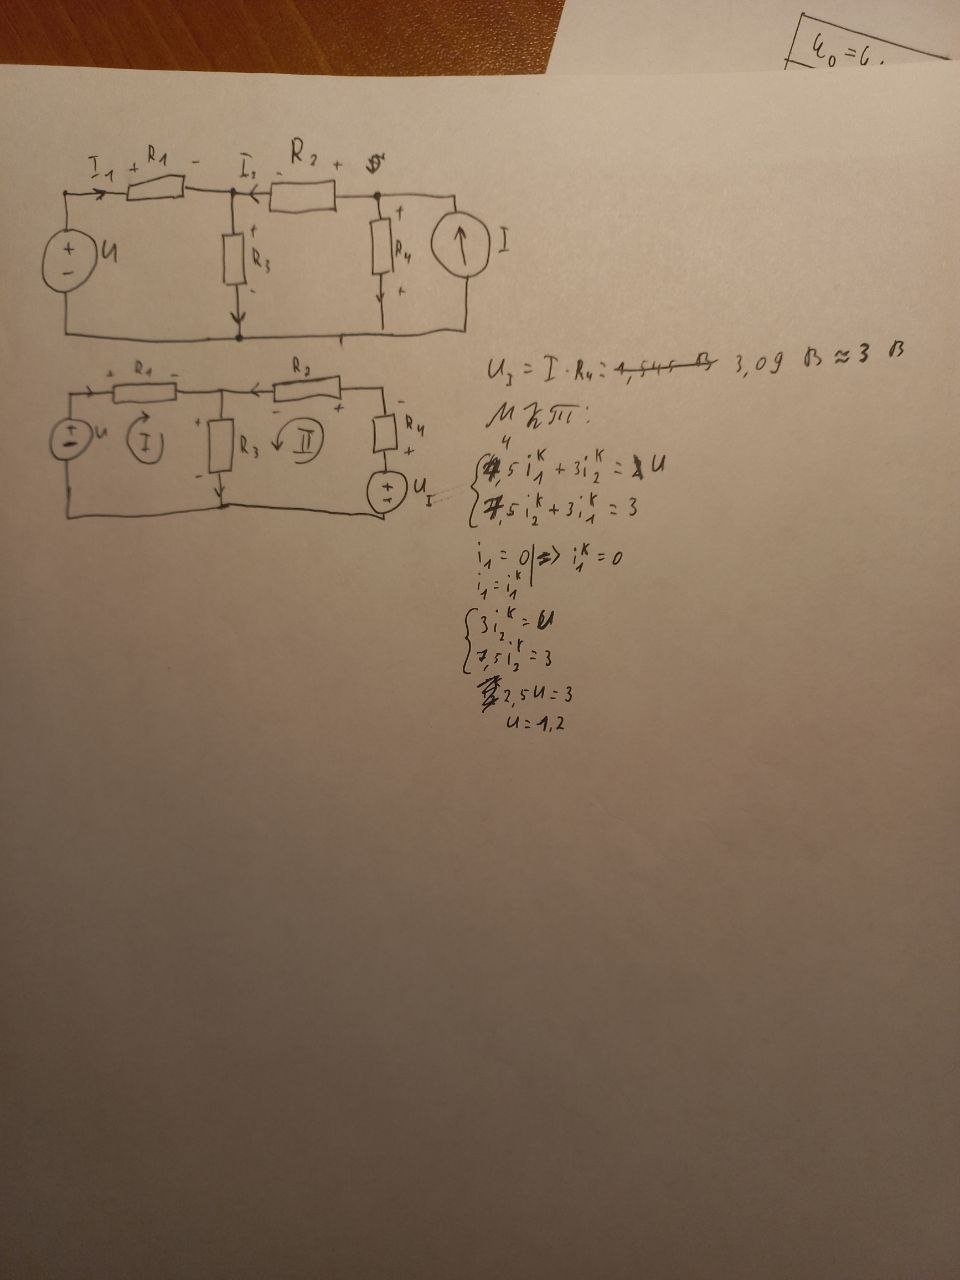 u₀ = u.
I₁ + R₁ - I₂ - R₂ +
+ - U + R₃ - + R₄ + I
+ R₁ - R₂
+ - U I + R₃ - - + II - R₄ + + - U_I
U_I = I · R₄ = 1,545 В 3,09 В ≈ 3 В
МКТ:
4,5 i₁ᴷ + 3i₂ᴷ = U
7,5 i₂ᴷ + 3i₁ᴷ = 3
i₁ = 0 | => i₁ᴷ = 0
i₁ = i₁ᴷ
3i₂ᴷ = U
7,5i₂ᴷ = 3
2,5U = 3
U = 1,2